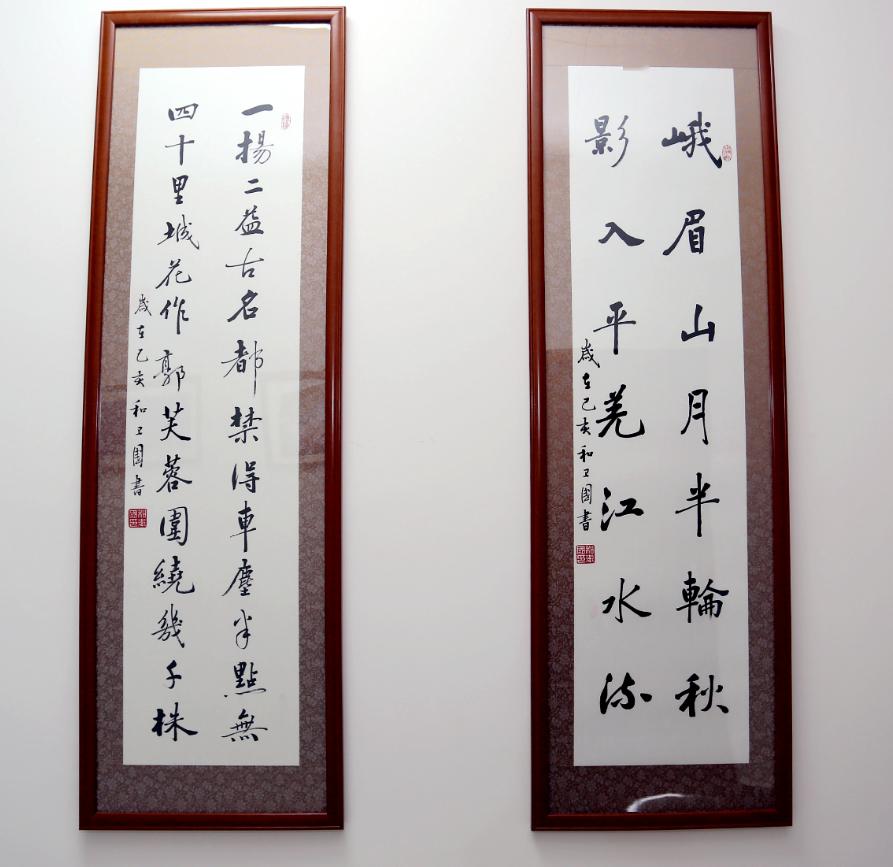 峨眉山月半輪秋
影入平羌江水流
歲在己亥和卫國書
一揚二益古名都禁得車塵半點無
四十里城花作郭芙蓉圍繞幾千株
歲在己亥和卫國書